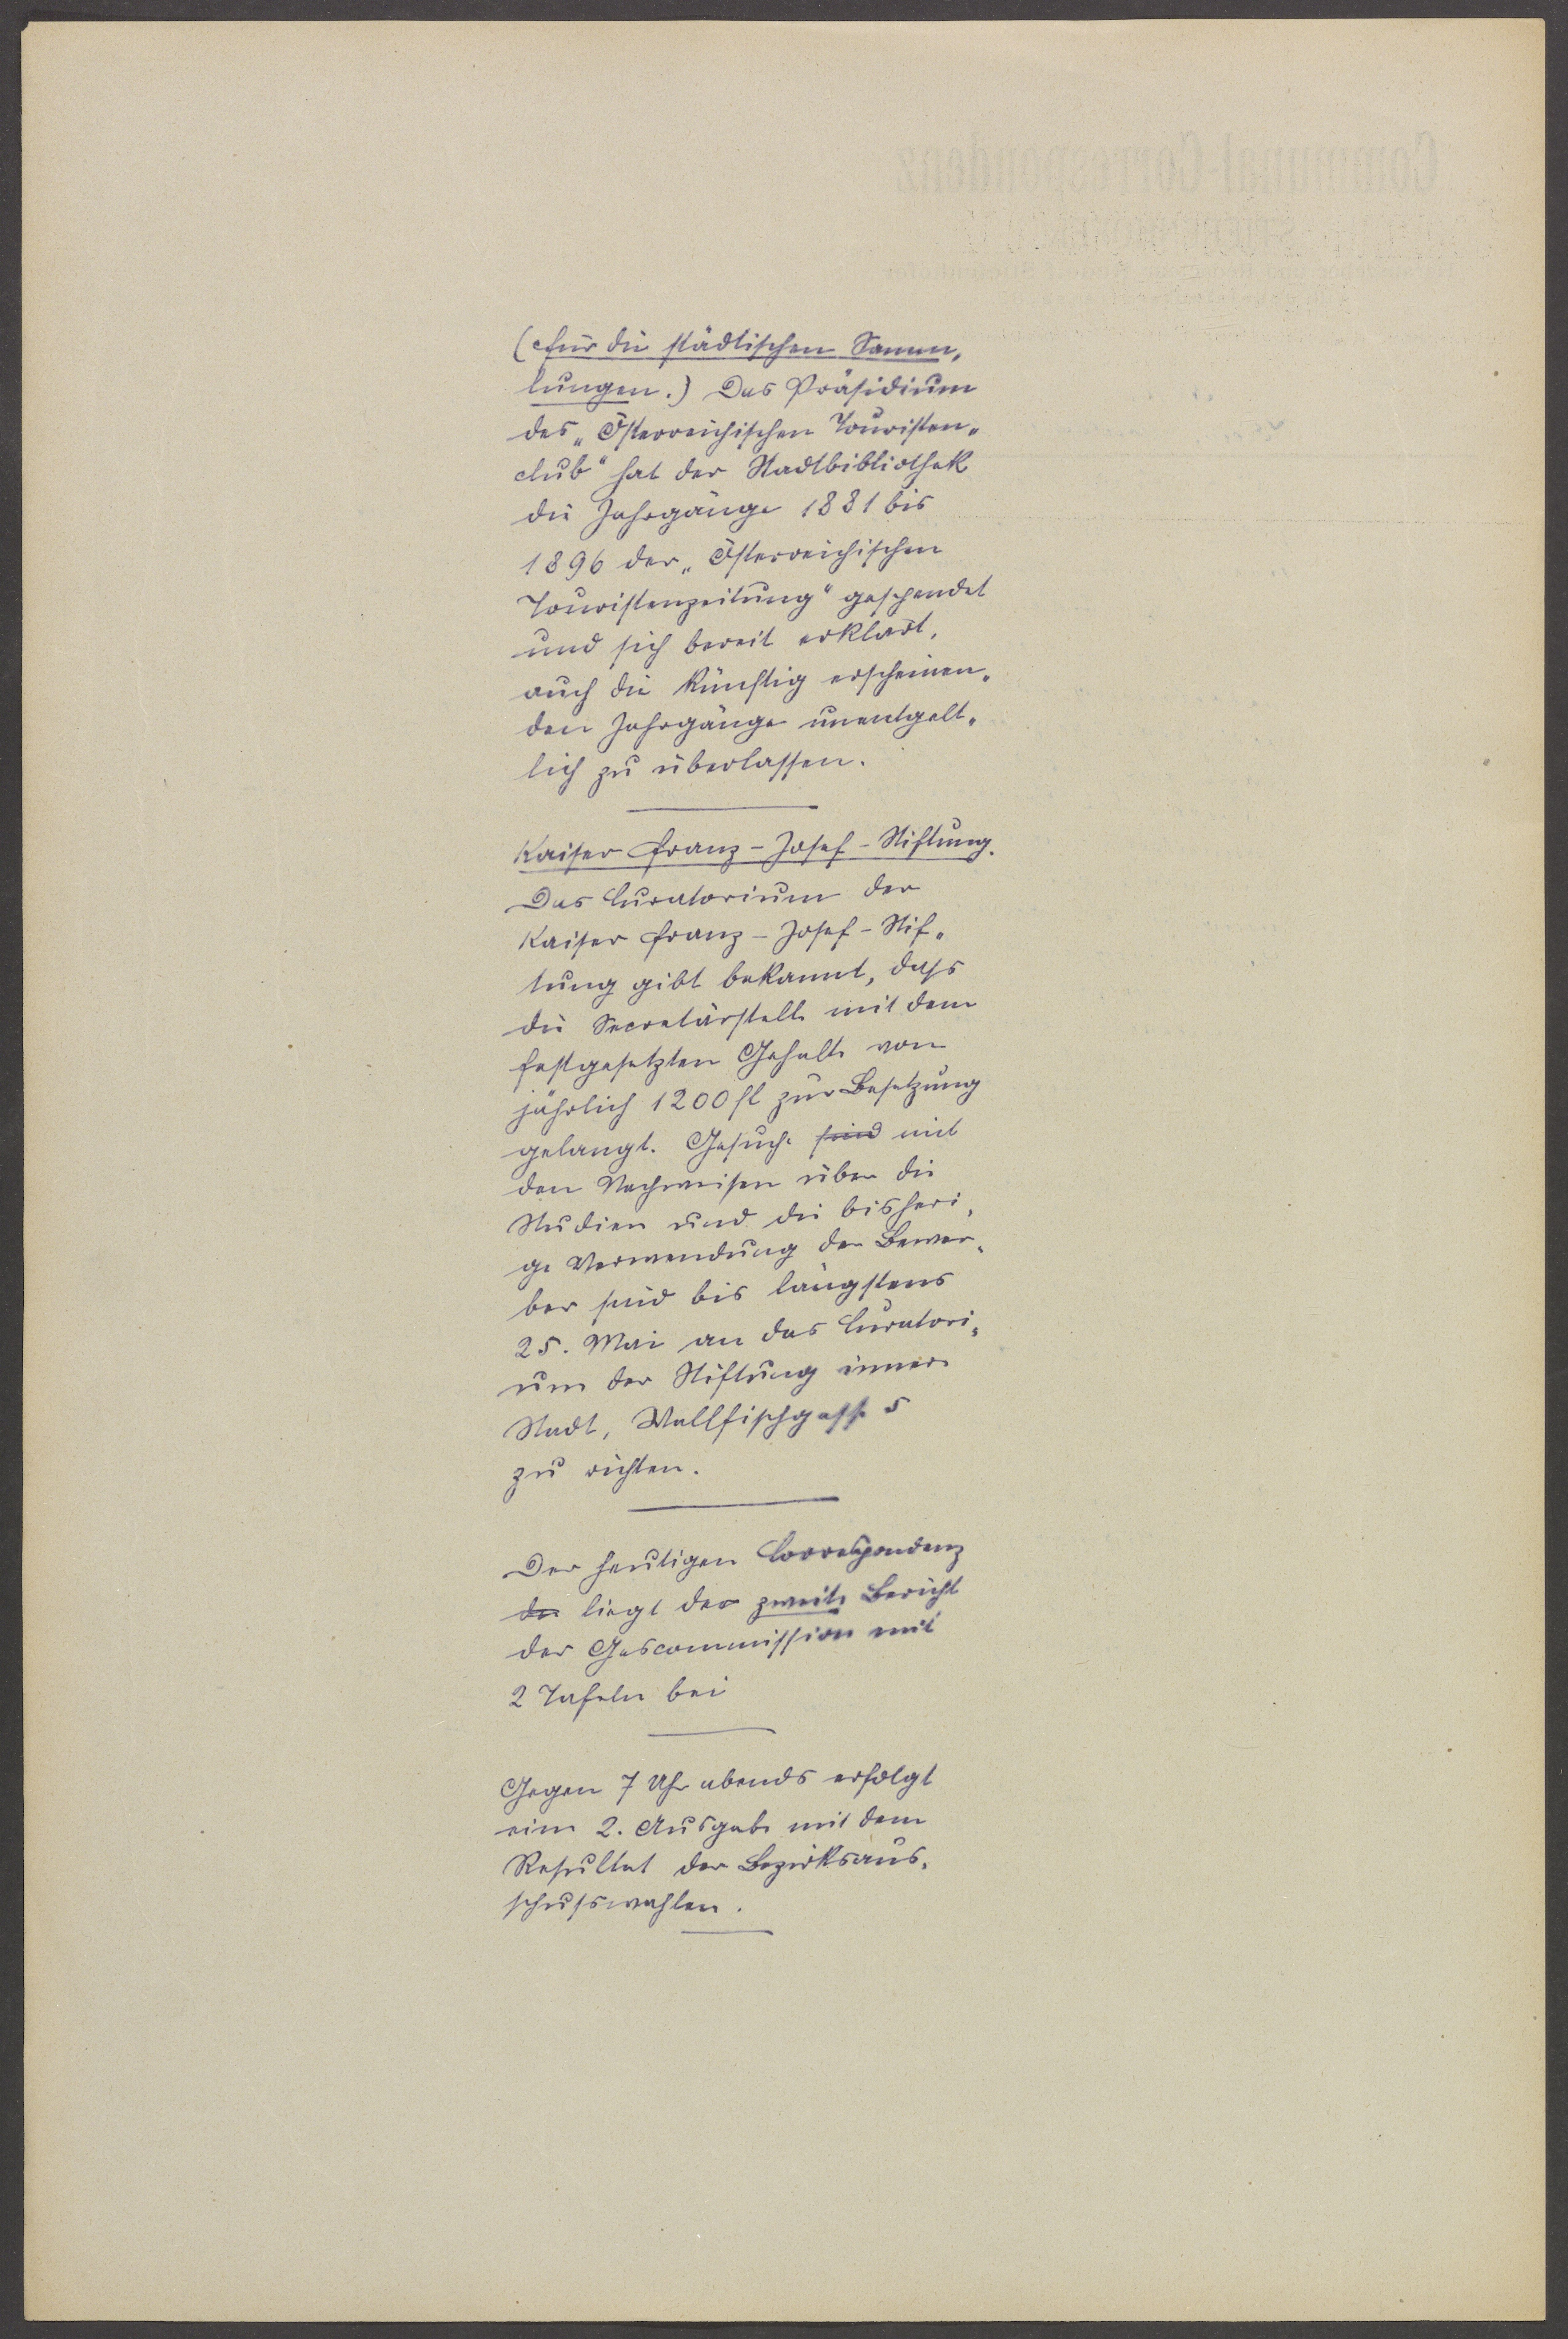 (Für die städtischen Samm„
lungen.) Das Präsidium
des „Österreichischen Touristen„
club“ hat der Stadtbibliothek
die Jahrgänge 1881 bis
1896 der „Österreichischen
Touristenzeitung“ gespendet
und sich bereit erklärt,
auch die künftig erscheinen„
den Jahrgänge unentgelt„
lich zu überlassen.
Kaiser Franz-Josef-Stiftung.
Das Curatorium der
Kaiser Franz-Josef-Stif„
tung gibt bekannt, dass
die Secretärstelle mit dem
festgesetzten Gehalte von
jährlich 1200 fl zur Besetzung
gelangt. Gesuche sind mit
den Nachweisen über die
Studien und die bisheri„
ge Verwendung der Bewer„
ber sind bis längstens
25. Mai an das Curatori„
um der Stiftung innere
Stadt, Wallfischgasse 5
zu richten.
Der heutigen Correspondenz
der liegt der zweite Bericht
der Gascommission mit
2 Tafeln bei
Gegen 7 Uhr abends erfolgt
eine 2. Ausgabe mit dem
Resultat der Bezirksaus„
schusswahlen.